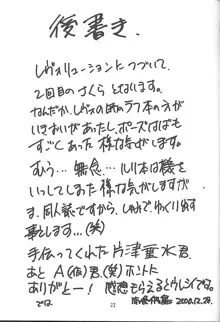 後書き.
レヴォリューションにつづいて、
2回目のさくらとなります。
なんだか、レヴォの時のラフ本の方が
いきおいがあったし、ポーズはばも
すごくあった様な気がします。
むぅ… 無念… ルリ本は機を
いっしてしまった様な気がしますが
ま、同人誌ですから、しゅみで、ゆっくり出す
事とします…(笑)
手伝ってくれた片津垂水君、
あと A(仮)君、(笑) ホントに
ありがとー! 感想もらえるとウレシイでな。
では 2000.12.29.
23